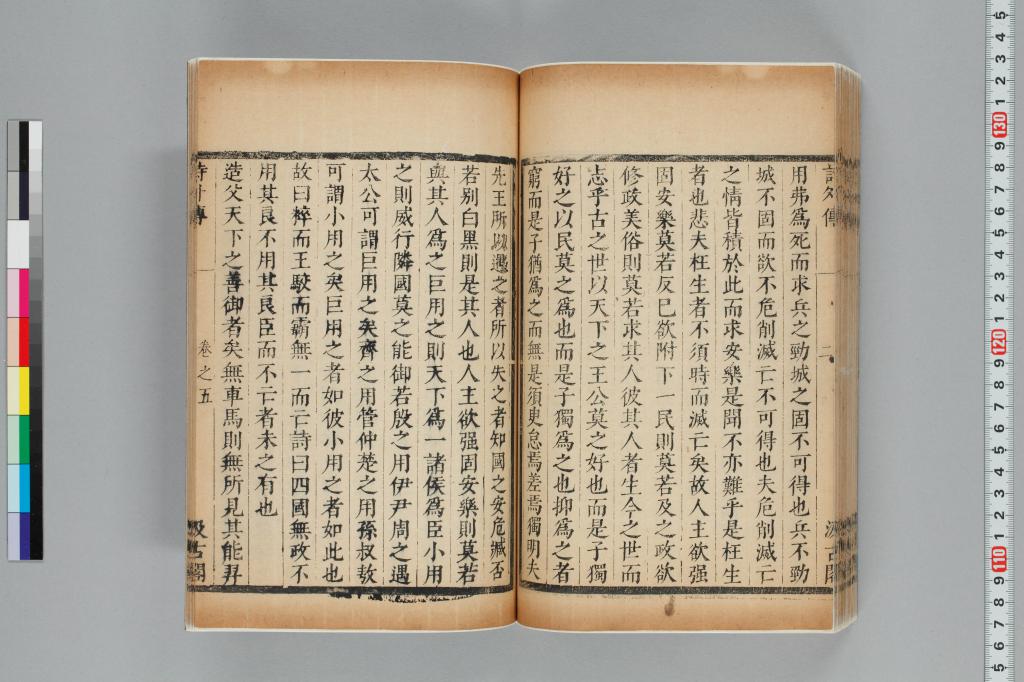 用弗爲死而求兵之勁城之固不可得也兵不勁
城不固而欲不危削滅亡不可得也夫危削滅亡
之情皆積於此而求安樂是聞不亦難乎是枉生
者也悲夫枉生者不須時而滅亡矣故人主欲强
固安樂莫若反已欲附下一民則莫若及之政欲
修政美俗則莫若求其人彼其人者生今之世而
志乎古之世以天下之王公莫之好也而是子獨
好之以民莫之爲也而是子獨爲之也抑爲之者
窮而是子猶爲之而無是須臾怠焉差焉獨明夫
先王所以遇之者所以失之者知國之安危臧否
若别白黑則是其人也人主欲强固安樂則莫若
與其人爲之巨用之則天下爲一諸侯爲臣小用
之則威行隣國莫之能御若殷之用伊尹周之遇
太公可謂巨用之矣齊之用管仲楚之用孫叔敖
可謂小用之矣巨用之者如彼小用之者如此也
故曰粹而王駮而霸無一而亡詩曰四國無政不
用其良不用其良臣而不亡者未之有也
造父天下之善御者矣無車馬則無所見其能羿
詩外傳
卷之五
汲古閣